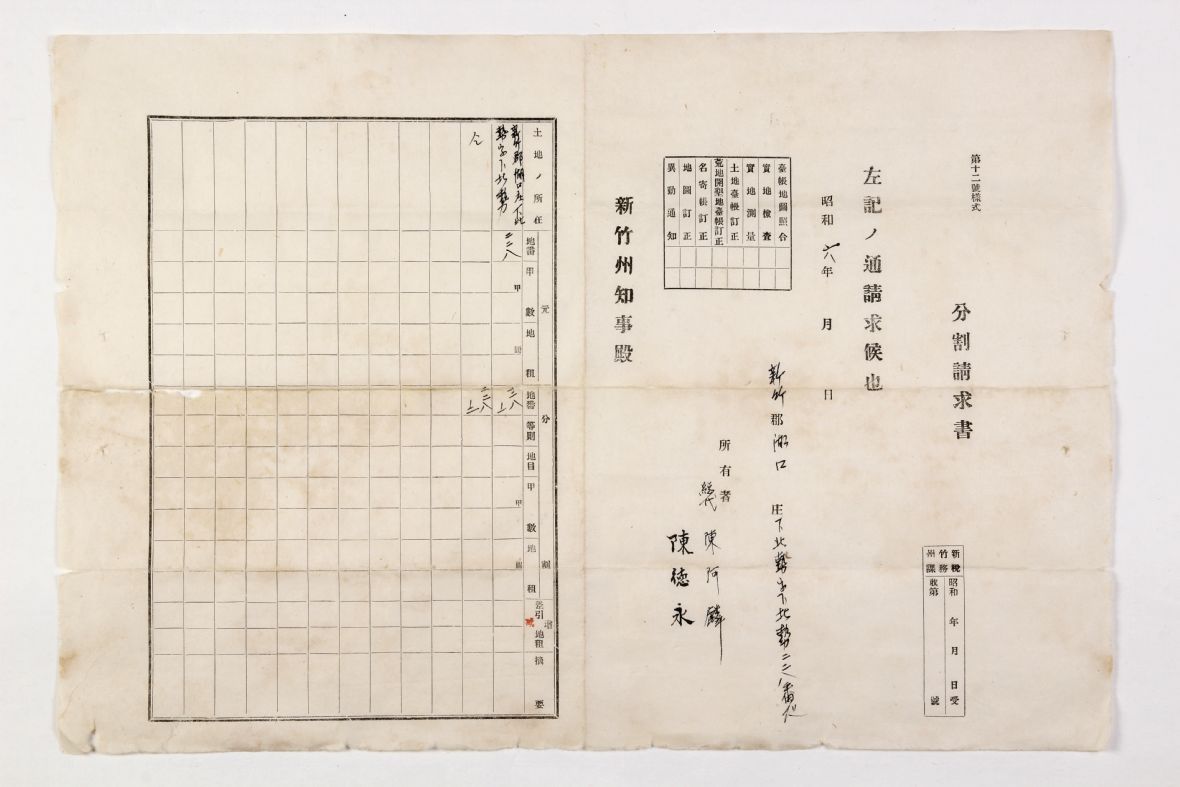 第十二號樣式
分割請求書
新竹州
稅務課
昭和 年 月 日受
收第 號
左記ノ通請求候也
昭和六年 月 日
新竹郡湖口庄下北勢字下北勢二二八番地
所有者
總代
陳阿麟
陳德永
臺帳地圖照合
實地檢查
實地測量
土地臺帳訂正
荒地開墾地臺帳訂正
名寄帳訂正
地圖訂正
異動通知
新竹州知事殿
土地ノ所在
元
地番
甲數
地租
分割
地番
等則
地目
甲數
地租
差引增減地租
摘要
新竹郡湖口庄下北
勢字下北勢
二二八
甲
圓
甲
圓
仝
二二八